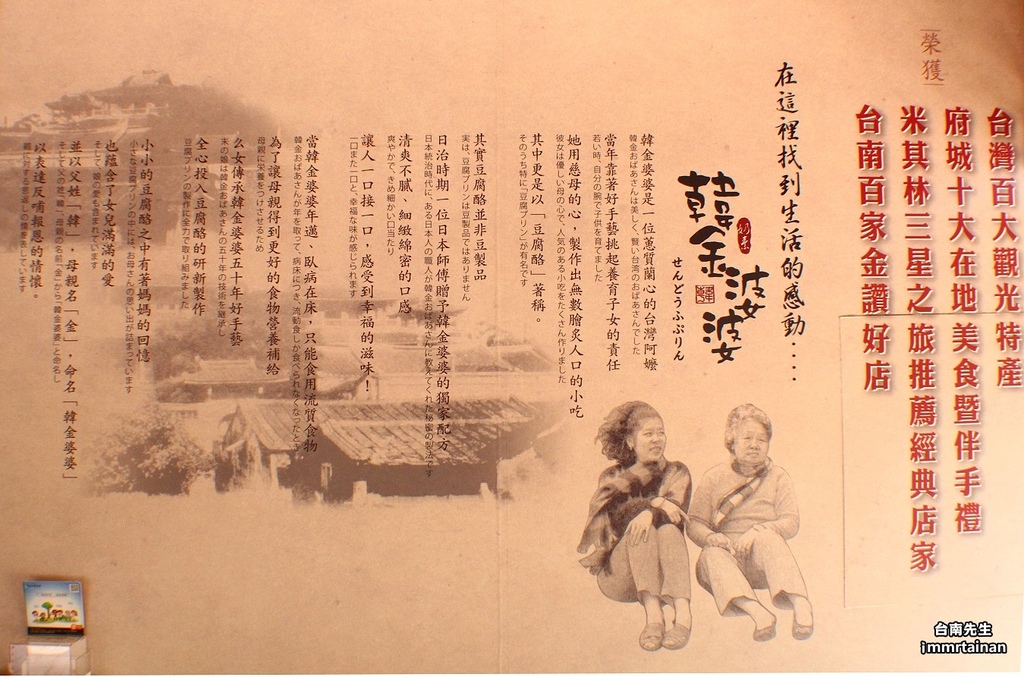 榮獲
台灣百大觀光特產
府城十大在地美食暨伴手禮
米其林三星之旅推薦經典店家
台南百家金讚好店
在這裡找到生活的感動....
韓金婆婆
せんどうふぷりん
韓金婆婆是一位蕙質蘭心的台灣阿嬤
韓金おばあさんは美しく、賢い台湾のおばあさんでした
當年靠著好手藝挑起養育子女的責任
若い時、自分の腕で子供を育てました
她用慈母的心，製作出無數膾炙人口的小吃
彼女は優しい母の心で、人気のある小吃をたくさん作りました
其中更是以「豆腐酪」著稱。
そのうち特に「豆腐プリン」が有名です
其實豆腐酪並非豆製品
実は、豆腐プリンは豆製品ではありません
日治時期一位日本師傅贈予韓金婆婆的獨家配方
日本統治時代に、ある日本人の職人が韓金おばあさんに教えてくれた秘密の製法です
清爽不膩、細緻綿密的口感
爽やかで、きめ細かい口当たり
讓人一口接一口，感受到幸福的滋味！
一口また一口と、幸福な味が感じられます
當韓金婆婆年邁、臥病在床，只能食用流質食物
韓金おばあさんが年を取って、病床につき、流動食しか食べられなくなったとき、
為了讓母親得到更好的食物營養補給
母親に栄養をつけさせるため
么女傳承韓金婆婆五十年好手藝
末の娘は韓金おばあさんの五十年の技術を継承し
全心投入豆腐酪的研新製作
豆腐プリンの製作に全力で取り組みました
小小的豆腐酪之中有著媽媽的回憶
小さな豆腐プリンの中には、お母さんの思い出が詰まっています
也蘊含了女兒滿滿的愛
そして、娘の愛も含まれています
並以父姓「韓」，母親名「金」，命名「韓金婆婆」
そして父の姓「韓」母親の名前「金」から「韓金婆婆」と命名し
以表達反哺報恩的情懷。
親に対する恩返しの情を表しています
台南先生
immrtainan